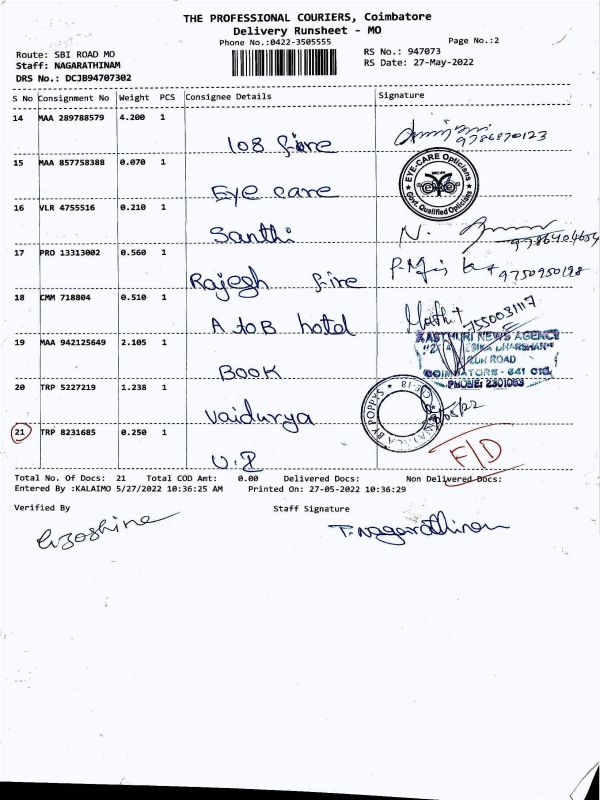 THE PROFESSIONAL COURIERS, Coimbatore
Delivery Runsheet - MO
Phone No.:0422-3505555
Page No.:2
Route: SBI ROAD MO
RS No.: 947073
Staff: NAGARATHINAM
RS Date: 27-May-2022
DRS No.: DCJB94707302
S No Consignment No Weight PCS Consignee Details Signature
14 MAA 289788579 4.200 1
108 fire 9786870123
15 MAA 857758388 0.070 1
EYE-CARE Opticians
Govt. Qualified Opticians
Eye care
16 VLR 4755516 0.210 1
Santhi N.
17 PRO 13313002 0.560 1
Rajesh fire 9750950198
18 CMM 718804 0.510 1
A to B hotel 7550031117
19 MAA 942125649 2.105 1
KASTHURI NEWS AGENCY
BOOK
COIMBATORE - 641 018
PHONE: 2301063
20 TRP 5227219 1.238 1
Vaidurya
BY POPPYS
21 TRP 8231685 0.250 1
F/D
Total No. Of Docs: 21 Total COD Amt: 0.00 Delivered Docs: Non Delivered Docs:
Entered By :KALAIMO 5/27/2022 10:36:25 AM Printed On: 27-05-2022 10:36:29
Verified By Staff Signature
T. Nagarathinam